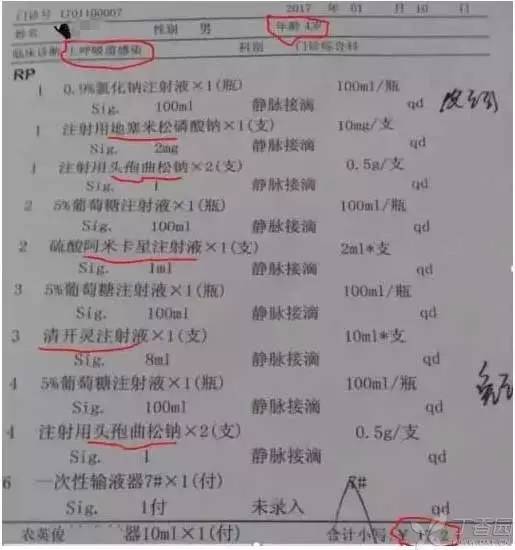 门诊号 1701100007 2017 年 01 月 10 日
姓名 性别 男 年龄 4岁
临床诊断 上呼吸道感染 科别 门诊综合科
RP
1 0.9%氯化钠注射液×1(瓶) 100ml/瓶
Sig. 100ml 静脉接滴 qd
1 注射用地塞米松磷酸钠×1(支) 10mg/支
Sig. 2mg 静脉接滴 qd
1 注射用头孢曲松钠×2(支) 0.5g/支
Sig. 1 静脉接滴 qd
2 5%葡萄糖注射液×1(瓶) 100ml/瓶
Sig. 100ml 静脉接滴 qd
2 硫酸阿米卡星注射液×1(支) 2ml*支
Sig. 1ml 静脉接滴 qd
3 5%葡萄糖注射液×1(瓶) 100ml/瓶
Sig. 100ml 静脉接滴 qd
3 清开灵注射液×1(支) 10ml*支
Sig. 8ml 静脉接滴 qd
4 5%葡萄糖注射液×1(瓶) 100ml/瓶
Sig. 100ml 静脉接滴 qd
4 注射用头孢曲松钠×2(支) 0.5g/支
Sig. 1 静脉接滴 qd
6 一次性输液器7#×1(付) 7#
Sig. 1付 未录入 qd
农英俊 器10ml×1(付) 合计小写 ¥
丁香园